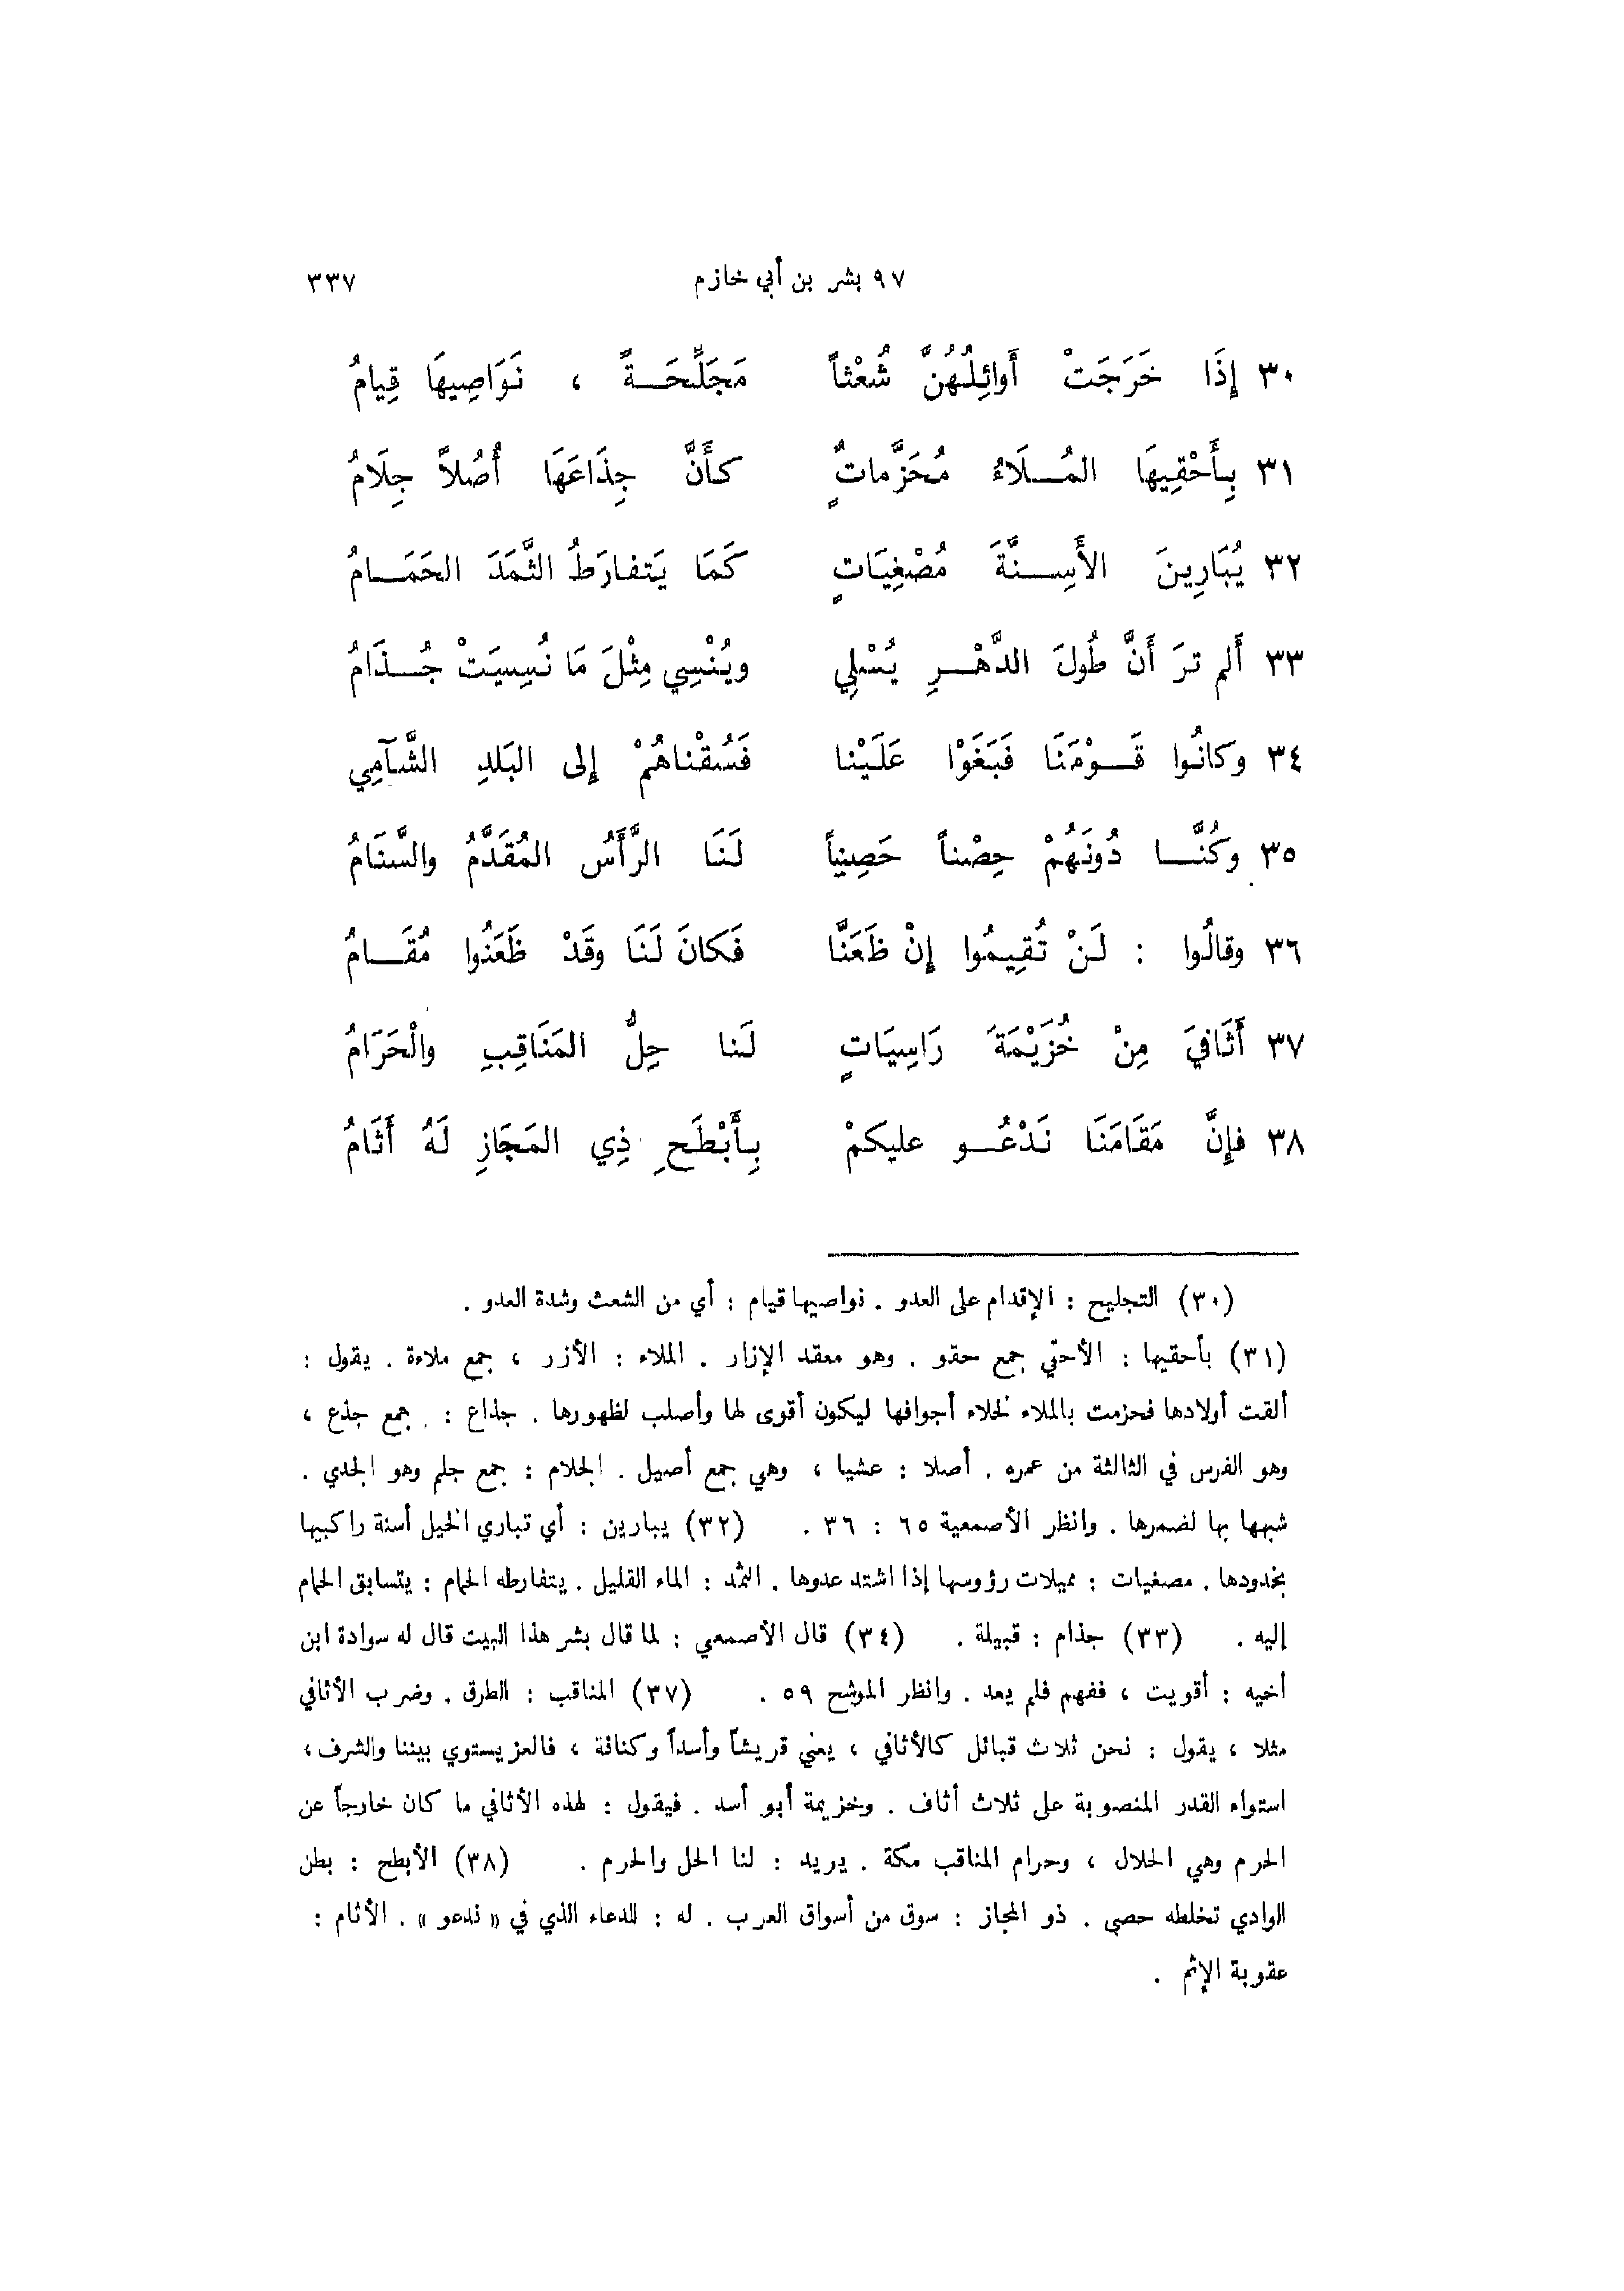 ٩٧ بشر بن أبي خازم ٣٣٧
٣٠ إِذَا خَرَجَتْ أَوائِلُهُنَّ شُعْثاً مَجَلِّحَةً ، نَوَاصِيهَا قِيامُ
٣١ بِأَحْقِيهَا المُلَاءُ مُحَزَّماتٌ كأَنَّ جِذَاعَهَا أُصُلاً جِلَامُ
٣٢ يُبَارِينَ الأَسِنَّةَ مُصْغِيَاتٍ كَمَا يَتفارَطُ الثَّمَدَ الحَمَامُ
٣٣ أَلم ترَ أَنَّ طُولَ الدَّهْرِ يُسْلِي ويُنْسِي مِثْلَ مَا نُسِيَتْ جُذَامُ
٣٤ وكانُوا قَوْمَنَا فَبَغَوْا عَلَيْنا فَسُقْناهُمْ إلى البَلدِ الشَّآمِي
٣٥ وكُنَّا دُونَهُمْ حِصْناً حَصِيناً لَنَا الرَّأْسُ المُقَدَّمُ والسَّنَامُ
٣٦ وقالُوا : لَنْ تُقِيمُوا إِنْ ظَعَنَّا فَكانَ لَنَا وقَدْ ظَعَنُوا مُقَامُ
٣٧ أَثَافيَ مِنْ خُزَيْمَةَ رَاسِيَاتٍ لَنا حِلُّ المَنَاقِبِ والْحَرَامُ
٣٨ فإِنَّ مَقَامَنَا نَدْعُو عليكمْ بِأَبْطَحِ ذِي المَجَازِ لَهُ أَثَامُ
(٣٠) التجليح : الإقدام على العدو . نواصيها قيام : أي من الشعث وشدة العدو .
(٣١) بأحقيها : الأحقي جمع حقو . وهو معقد الإزار . الملاء : الأزر ، جمع ملاءة . يقول :
ألقت أولادها فحزمت بالملاء لخلاء أجوافها ليكون أقوى لها وأصلب لظهورها . جذاع : جمع جذع ،
وهو الفرس في الثالثة من عمره . أصلا : عشيا ، وهي جمع أصيل . الجلام : جمع جلم وهو الجدي .
شبهها بها لضمرها . وانظر الأصمعية ٦٥ : ٣٦ . (٣٢) يبارين : أي تباري الخيل أسنة راكبيها
بخدودها . مصغيات : مميلات رؤوسها إذا اشتد عدوها . الثمد : الماء القليل . يتفارطه الحمام : يتسابق الحمام
إليه . (٣٣) جذام : قبيلة . (٣٤) قال الأصمعي : لما قال بشر هذا البيت قال له سوادة ابن
أخيه : أقويت ، ففهم فلم يعد . وانظر الموشح ٥٩ . (٣٧) المناقب : الطرق . وضرب الأثافي
مثلا ، يقول : نحن ثلاث قبائل كالأثافي ، يعني قريشاً وأسداً وكنانة ، فالعز يستوي بيننا والشرف ،
استواء القدر المنصوبة على ثلاث أثاف . وخزيمة أبو أسد . فيقول : لهذه الأثافي ما كان خارجاً عن
الحرم وهي الحلال ، وحرام المناقب مكة . يريد : لنا الحل والحرم . (٣٨) الأبطح : بطن
الوادي تخلطه حصى . ذو المجاز : سوق من أسواق العرب . له : للدعاء الذي في « ندعو » . الأثام :
عقوبة الإثم .